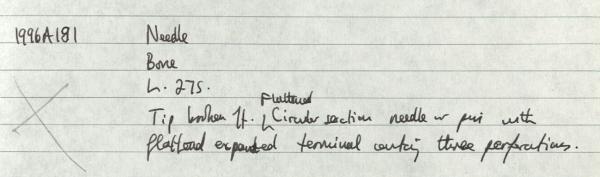 1996A181 Needle
Bone
L. 275.
Tip broken ff. Flattened Circular section needle or pin with
flattened expanded terminal containing three perforations.